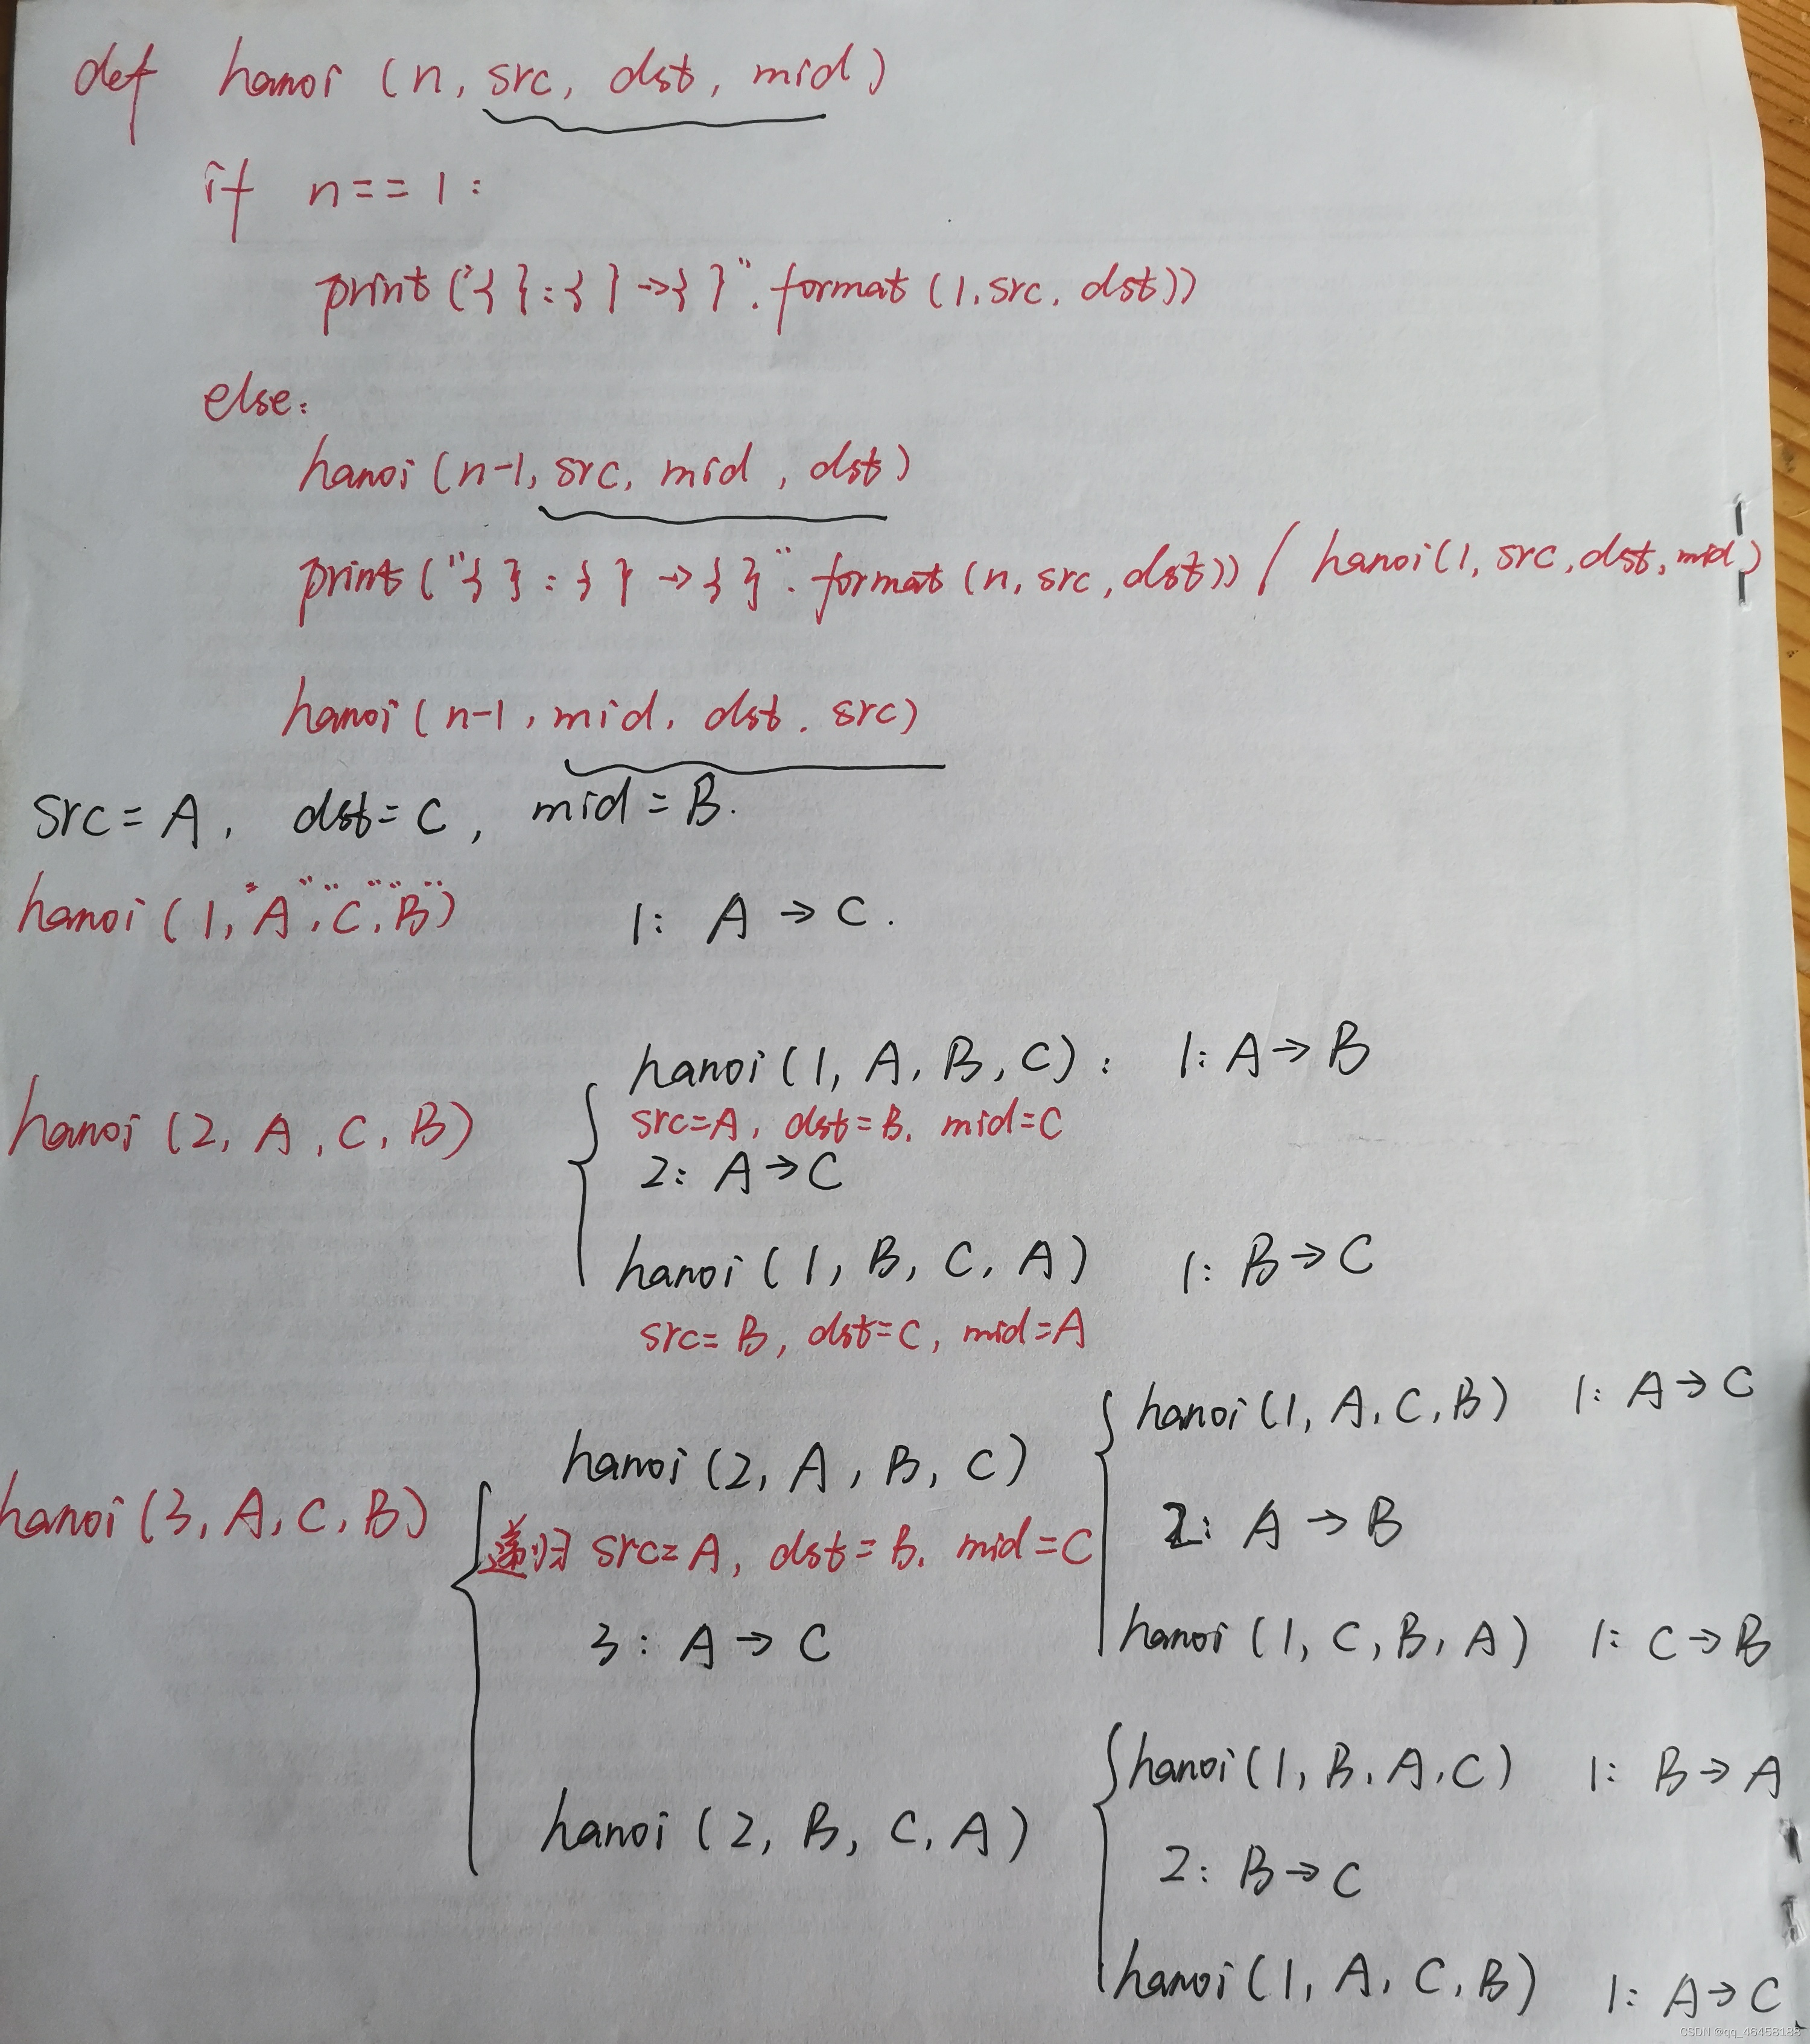 def hanoi (n, src, dst, mid)
if n == 1 :
print ("{ } : { } → { }". format (1, src, dst))
else:
hanoi (n-1, src, mid, dst)
print ("{ } : { } → { }". format (n, src, dst)) / hanoi (1, src, dst, mid)
hanoi (n-1, mid, dst, src)
src = A, dst = C, mid = B.
hanoi (1, "A", "C", "B") 1: A → C.
hanoi (1, A, B, C) : 1: A → B
hanoi (2, A, C, B) src=A, dst=B, mid=C
2: A → C
hanoi (1, B, C, A) 1: B → C
src=B, dst=C, mid=A
hanoi (1, A, C, B) 1: A → C
hanoi (2, A, B, C)
hanoi (3, A, C, B) 2: A → B
递归 src=A, dst=B, mid=C
3: A → C hanoi (1, C, B, A) 1: C → B
hanoi (1, B, A, C) 1: B → A
hanoi (2, B, C, A) 2: B → C
hanoi (1, A, C, B) 1: A → C
CSDN @qq_46458188